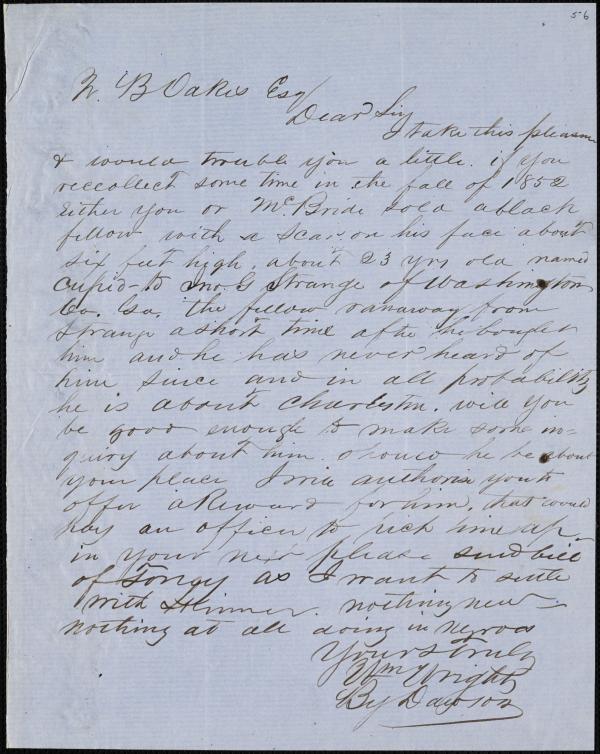 56
Z. B Oakes Esq
Dear Sir
I take this pleasure
& would trouble you a little. if you
reccollect some time in the fall of 1852
Either you or McBride sold a black
fellow with a Scar on his face about
six feet high. about 23 yrs old named
Cupid - to Jno. G Strange of Washington
Co. Ga. the fellow ranaway from
Strange a short time after he bought
him and he has never heard of
him since and in all probability
he is about Charleston. will you
be good enough to make some in=
quiry about him. Should he be about
your place I will authorise you to
offer a Reward for him, that would
pay an officer to pick him up.
in your next please send bill
of Torrey as I want to settle
with Skinner. nothing new -
nothing at all doing in negroes
Yours Truly
Wm Wright
By Dawson